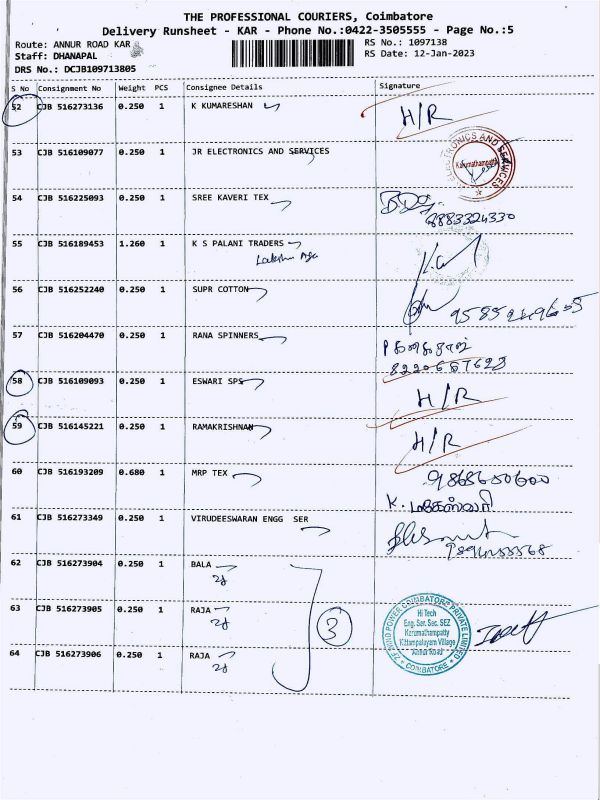 THE PROFESSIONAL COURIERS, Coimbatore
Delivery Runsheet - KAR - Phone No.:0422-3505555 - Page No.:5
Route: ANNUR ROAD KAR
RS No.: 1097138
Staff: DHANAPAL
RS Date: 12-Jan-2023
DRS No.: DCJB109713805
S No Consignment No Weight PCS Consignee Details Signature
52 CJB 516273136 0.250 1 K KUMARESHAN H/R
53 CJB 516109077 0.250 1 JR ELECTRONICS AND SERVICES
ELECTRONICS AND SERVICES
Karumathampatti
54 CJB 516225093 0.250 1 SREE KAVERI TEX
8883324330
55 CJB 516189453 1.260 1 K S PALANI TRADERS
56 CJB 516252240 0.250 1 SUPR COTTON
57 CJB 516204470 0.250 1 RANA SPINNERS
8220657623
58 CJB 516109093 0.250 1 ESWARI SPS H/R
59 CJB 516145221 0.250 1 RAMAKRISHNAN H/R
60 CJB 516193209 0.680 1 MRP TEX
K. மகேஸ்வரி
61 CJB 516273349 0.250 1 VIRUDEESWARAN ENGG SER
62 CJB 516273904 0.250 1 BALA
63 CJB 516273905 0.250 1 RAJA
3
64 CJB 516273906 0.250 1 RAJA
ZF WIND POWER COIMBATORE PRIVATE LIMITED
Hi Tech
Eng. Ser. Sec. SEZ
Karumathampatty
Kittampalayam Village
Annur Road
COIMBATORE